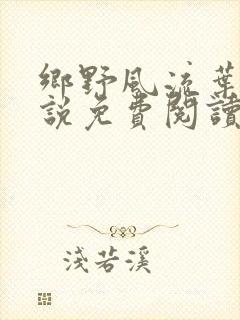 鄉野風流葉
說免費閱讀
淺若溪